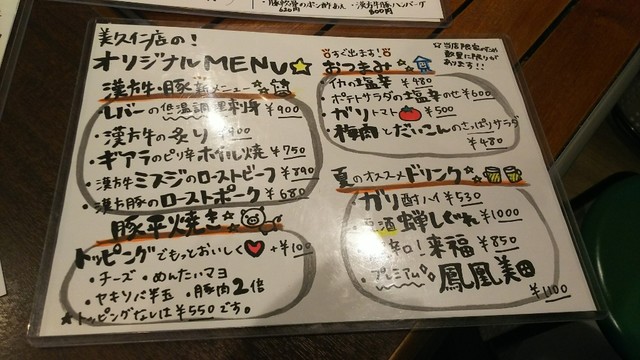 ・豚軟骨のポン酢あん ・漢方牛豚ハンバーグ
630円 800円
美久仁店の!
オリジナルMENU☆
漢方牛・豚 新メニュー☆
・レバーの低温調理刺身 ¥900
・漢方牛の炙り ¥900
・ギアラのピリ辛ホイル焼 ¥750
・漢方牛ミスジのローストビーフ ¥890
・漢方豚のローストポーク ¥680
豚平焼き☆
トッピングでもっとおいしく♥ +¥100
・チーズ ・めんたいマヨ
・ヤキソバ半玉 ・豚肉2倍
★トッピングなしは¥550です。
すぐ出ます!
おつまみ☆
当店限定のため
数量に限りが
あります!!
イカの塩辛 ¥480
ポテトサラダの塩辛のせ ¥600
・ガリトマト ¥500
・梅肉とだいこんのさっぱりサラダ
¥480
夏のオススメドリンク☆
・ガリ酎ハイ ¥530
蝉しぐれ ¥1000
辛口!来福 ¥850
・プレミアム 鳳凰美田
¥1100